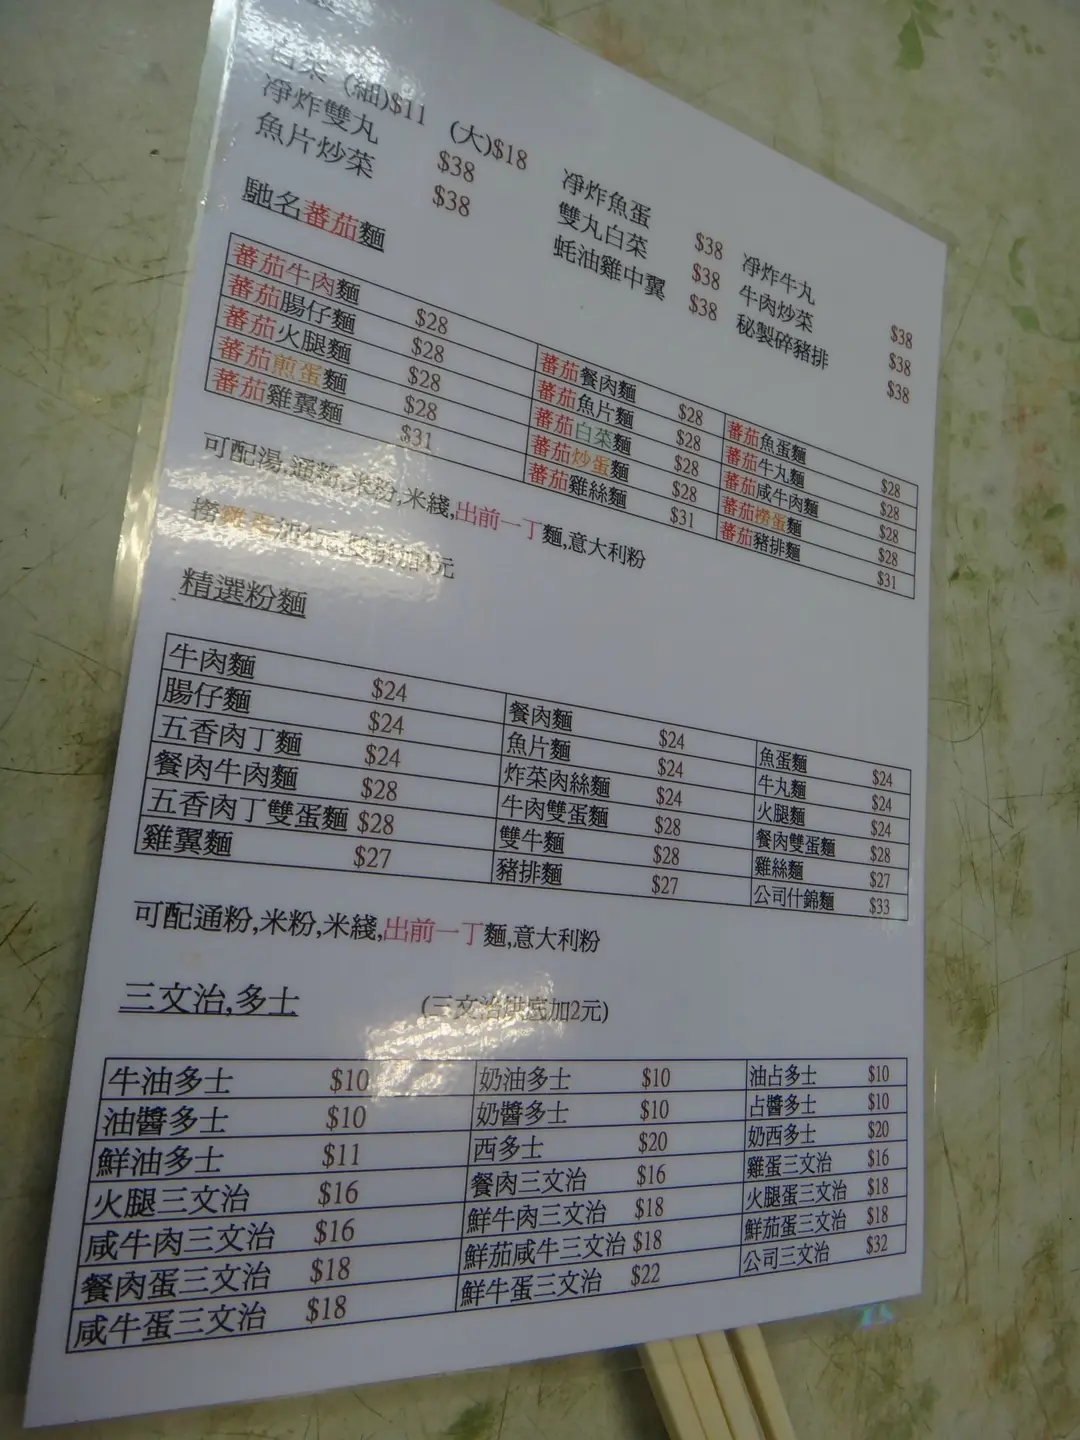 白菜 (細)$11 (大)$18
凈炸雙丸 $38 凈炸魚蛋 $38 凈炸牛丸 $38
魚片炒菜 $38 雙丸白菜 $38 牛肉炒菜 $38
蚝油雞中翼 $38 秘製碎豬排 $38
馳名蕃茄麵
蕃茄牛肉麵 $28 蕃茄餐肉麵 $28 蕃茄魚蛋麵 $28
蕃茄腸仔麵 $28 蕃茄魚片麵 $28 蕃茄牛丸麵 $28
蕃茄火腿麵 $28 蕃茄白菜麵 $28 蕃茄咸牛肉麵 $28
蕃茄煎蛋麵 $28 蕃茄炒蛋麵 $28 蕃茄撈蛋麵 $28
蕃茄雞翼麵 $31 蕃茄雞絲麵 $31 蕃茄豬排麵 $31
可配湯,通粉,米粉,米綫,出前一丁麵,意大利粉
精選粉麵
牛肉麵 $24 餐肉麵 $24 魚蛋麵 $24
腸仔麵 $24 魚片麵 $24 牛丸麵 $24
五香肉丁麵 $24 炸菜肉絲麵 $24 火腿麵 $24
餐肉牛肉麵 $28 牛肉雙蛋麵 $28 餐肉雙蛋麵 $28
五香肉丁雙蛋麵 $28 雙牛麵 $28 雞絲麵 $27
雞翼麵 $27 豬排麵 $27 公司什錦麵 $33
可配通粉,米粉,米綫,出前一丁麵,意大利粉
三文治,多士 (三文治烘底加2元)
牛油多士 $10 奶油多士 $10 油占多士 $10
油醬多士 $10 奶醬多士 $10 占醬多士 $10
鮮油多士 $11 西多士 $20 奶西多士 $20
火腿三文治 $16 餐肉三文治 $16 雞蛋三文治 $16
咸牛肉三文治 $16 鮮牛肉三文治 $18 火腿蛋三文治 $18
餐肉蛋三文治 $18 鮮茄咸牛三文治 $18 鮮茄蛋三文治 $18
咸牛蛋三文治 $18 鮮牛蛋三文治 $22 公司三文治 $32